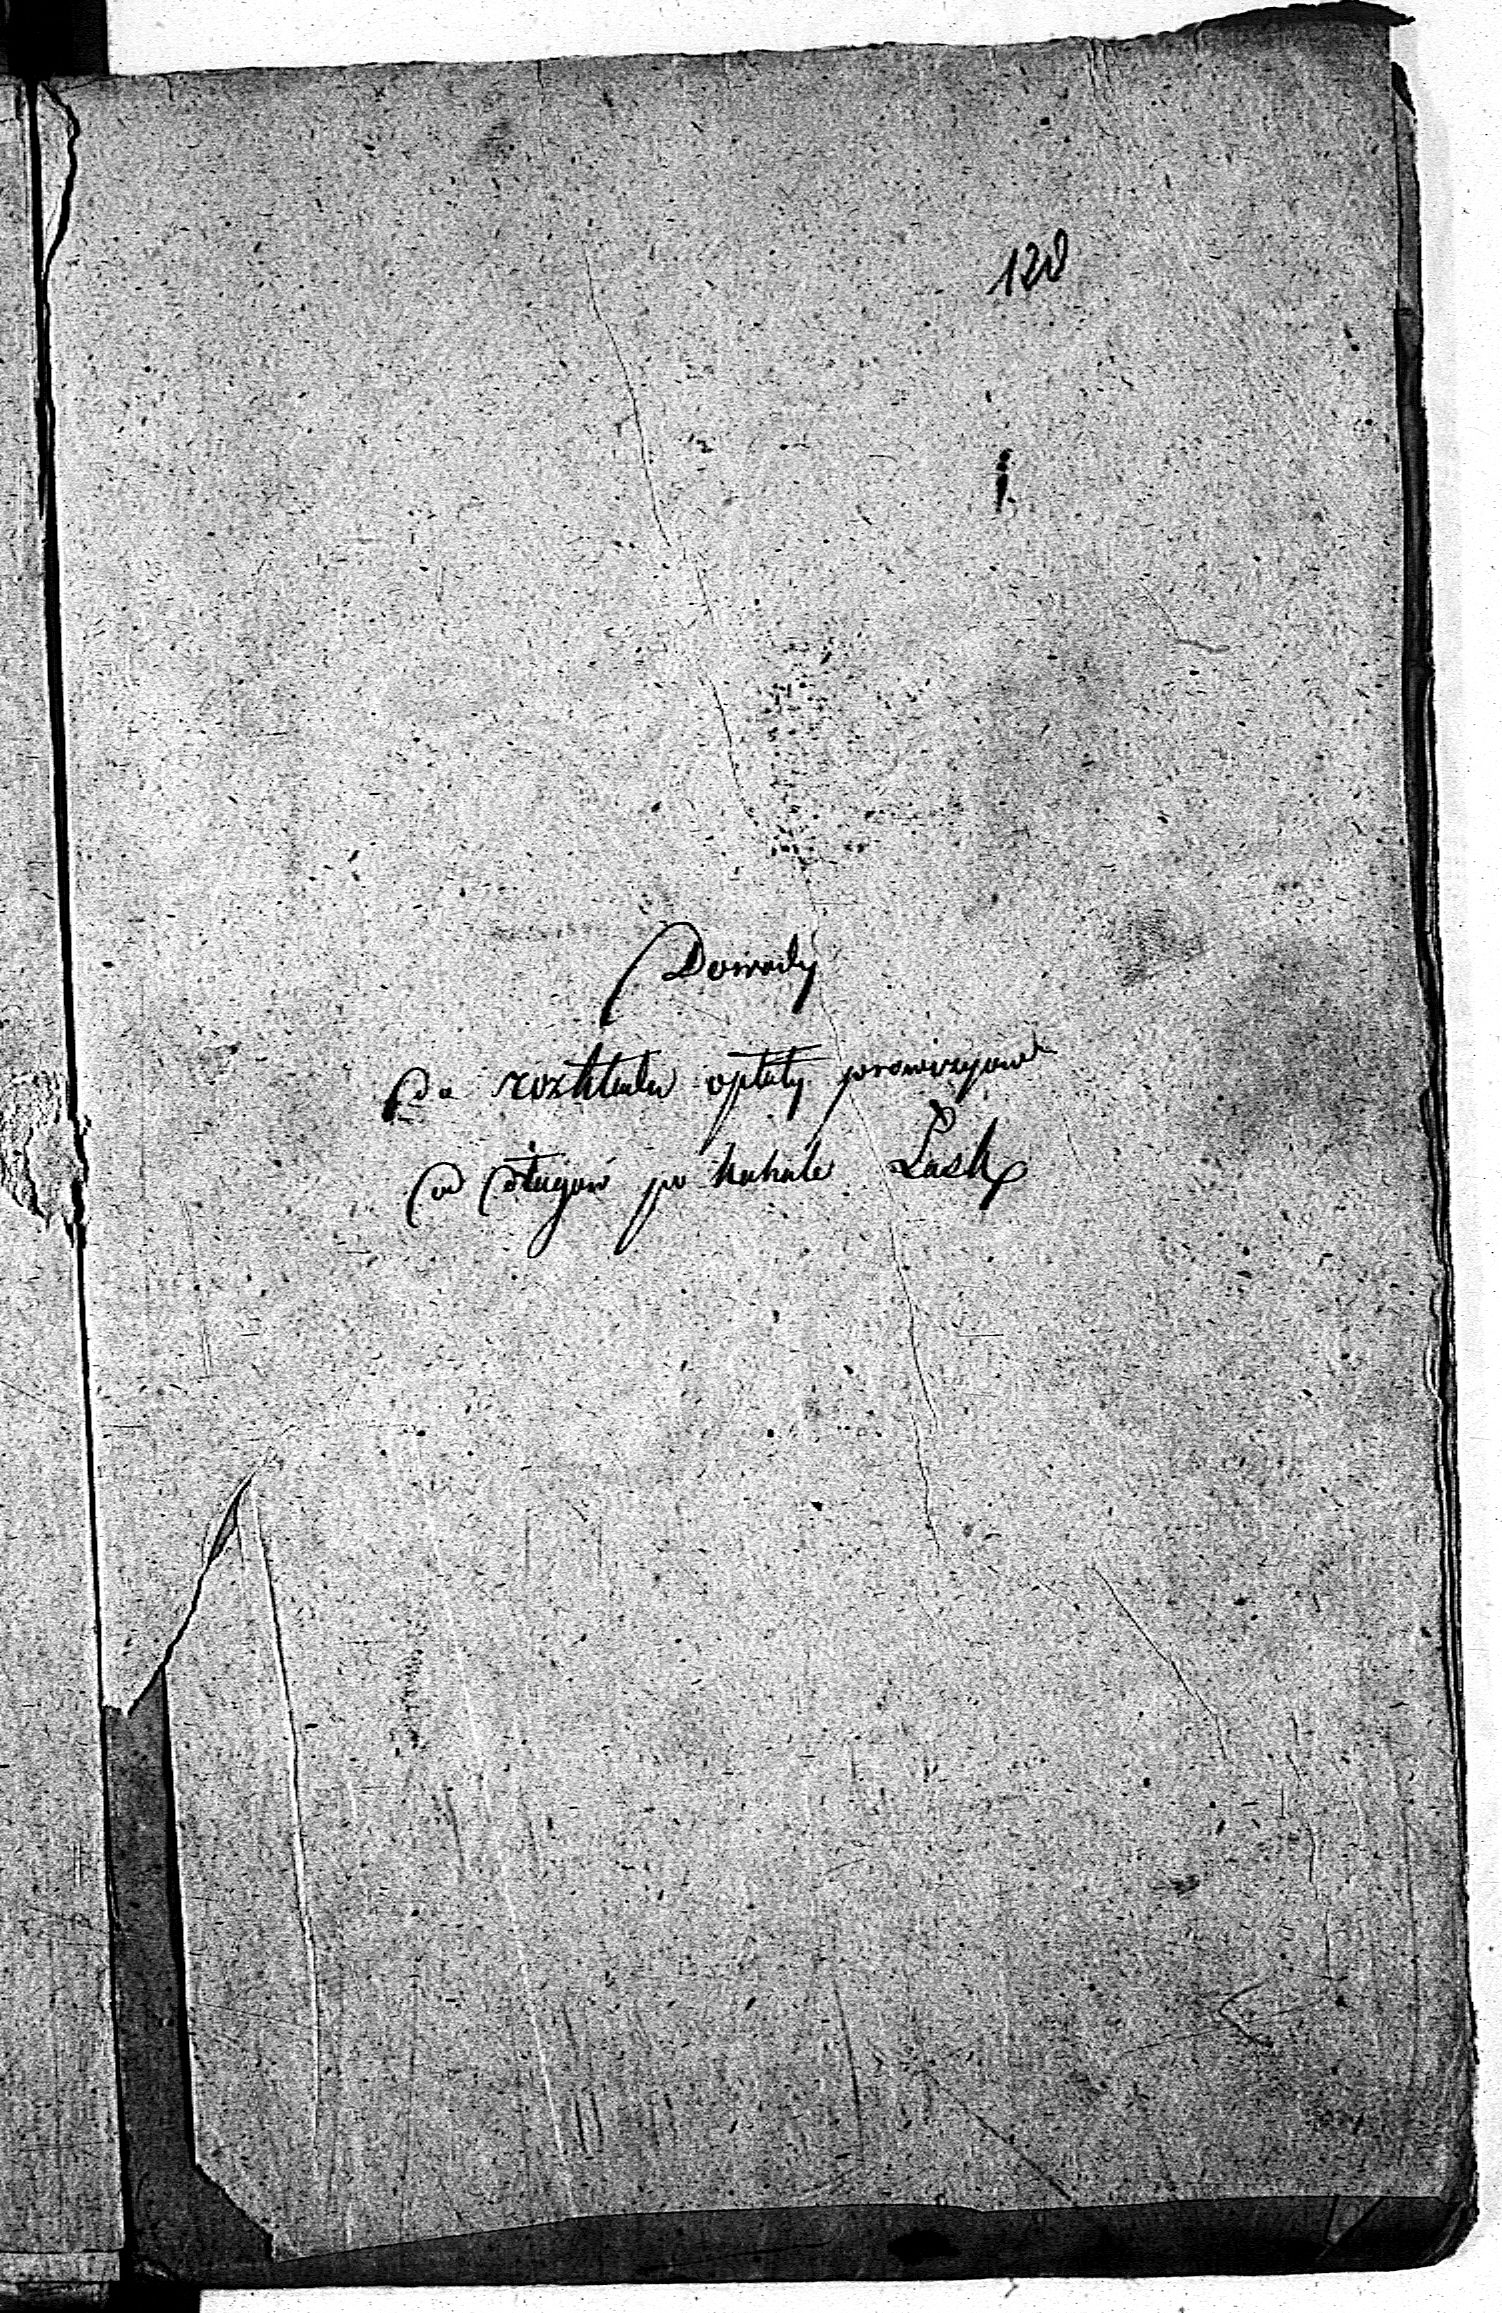 120
Dowody
Do rozkładu opłaty prowizyow
od długów po kahale Łask